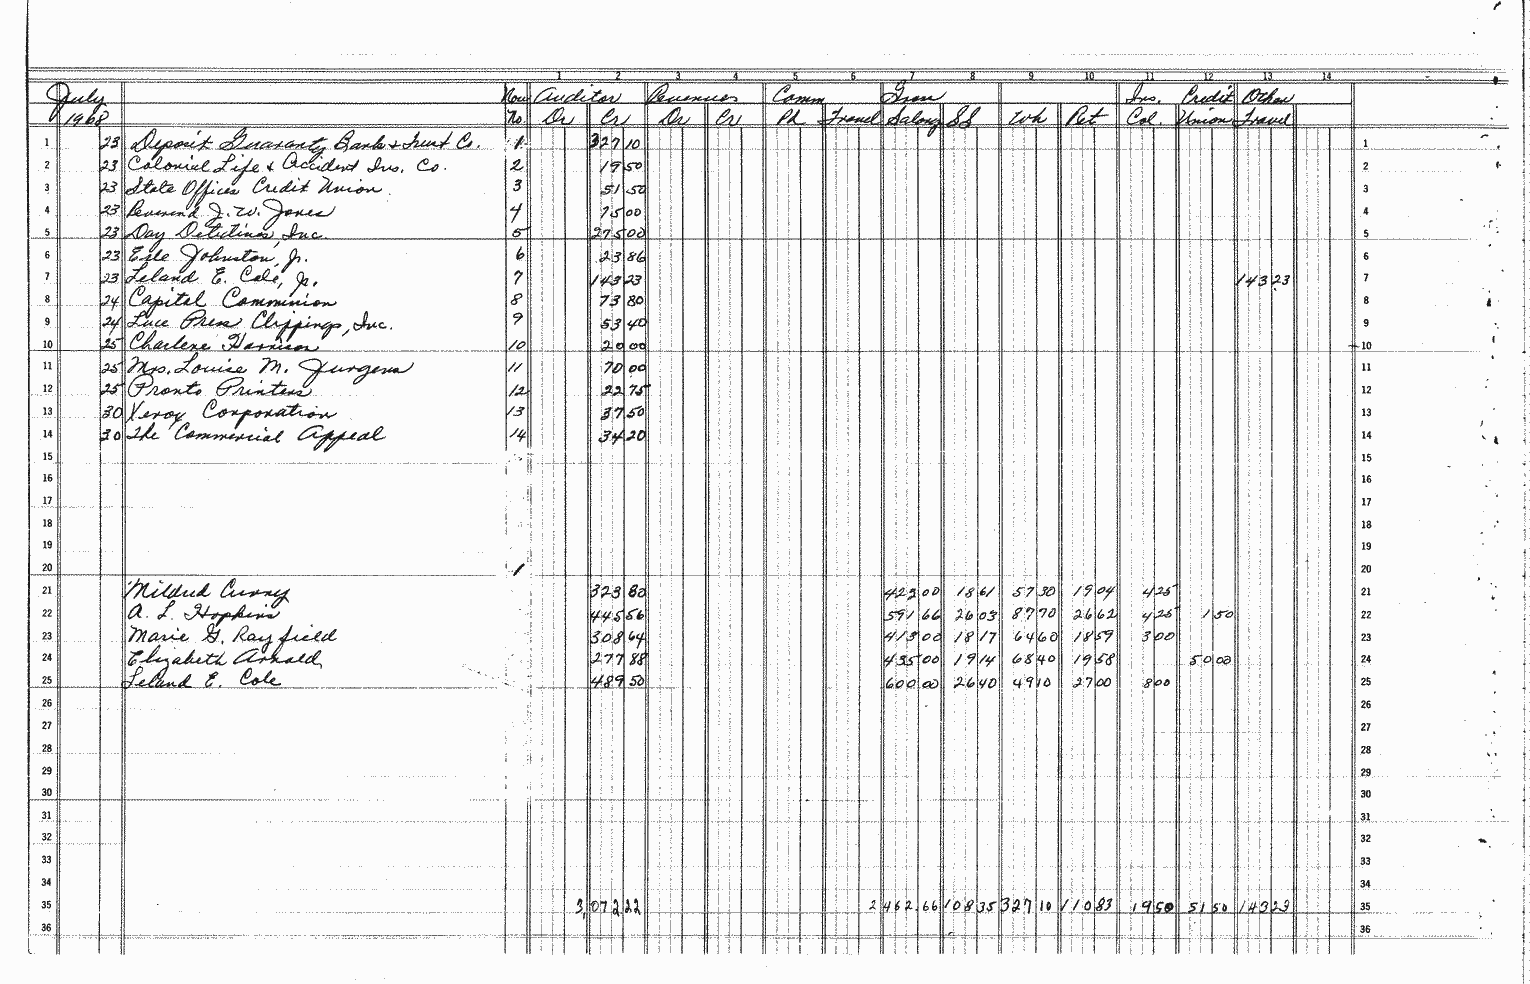 1 2 3 4 5 6 7 8 9 10 11 12 13 14
July Vou Auditor Revenues Comm Gross Ins. Credit Other
1968 No. Dr Cr Dr Cr Pd Travel Salary SS Wh Ret Col. Union Travel
1 23 Deposit Guaranty Bank & Trust Co. 1 327 10 1
2 23 Colonial Life & Accident Ins. Co. 2 19 50 2
3 23 State Offices Credit Union 3 51 50 3
4 23 Reverend J. W. Jones 4 75 00 4
5 23 Day Detectives, Inc. 5 275 00 5
6 23 Erle Johnston, Jr. 6 23 86 6
7 23 Leland E. Cole, Jr. 7 143 23 143 23 7
8 24 Capitol Commission 8 73 80 8
9 24 Luce Press Clippings, Inc. 9 53 40 9
10 25 Charlene Harrison 10 20 00 10
11 25 Mrs. Louise M. Jurgens 11 70 00 11
12 25 Pronto Printers 12 22 75 12
13 30 Xerox Corporation 13 37 50 13
14 30 The Commercial Appeal 14 34 20 14
15 15
16 16
17 17
18 18
19 19
20 20
21 Mildred Curry 323 80 423 00 18 61 57 30 19 04 4 25 21
22 A. L. Hopkins 445 56 591 66 26 03 87 70 26 62 4 25 1 50 22
23 Marie G. Rayfield 308 64 413 00 18 17 64 60 18 59 3 00 23
24 Elizabeth Arnold 277 88 435 00 19 14 68 40 19 58 50 00 24
25 Leland E. Cole 489 50 600 00 26 40 49 10 27 00 8 00 25
26 26
27 27
28 28
29 29
30 30
31 31
32 32
33 33
34 34
35 3,072 22 2 462.66 108 35 327 10 110 83 19 50 51 50 143 23 35
36 36